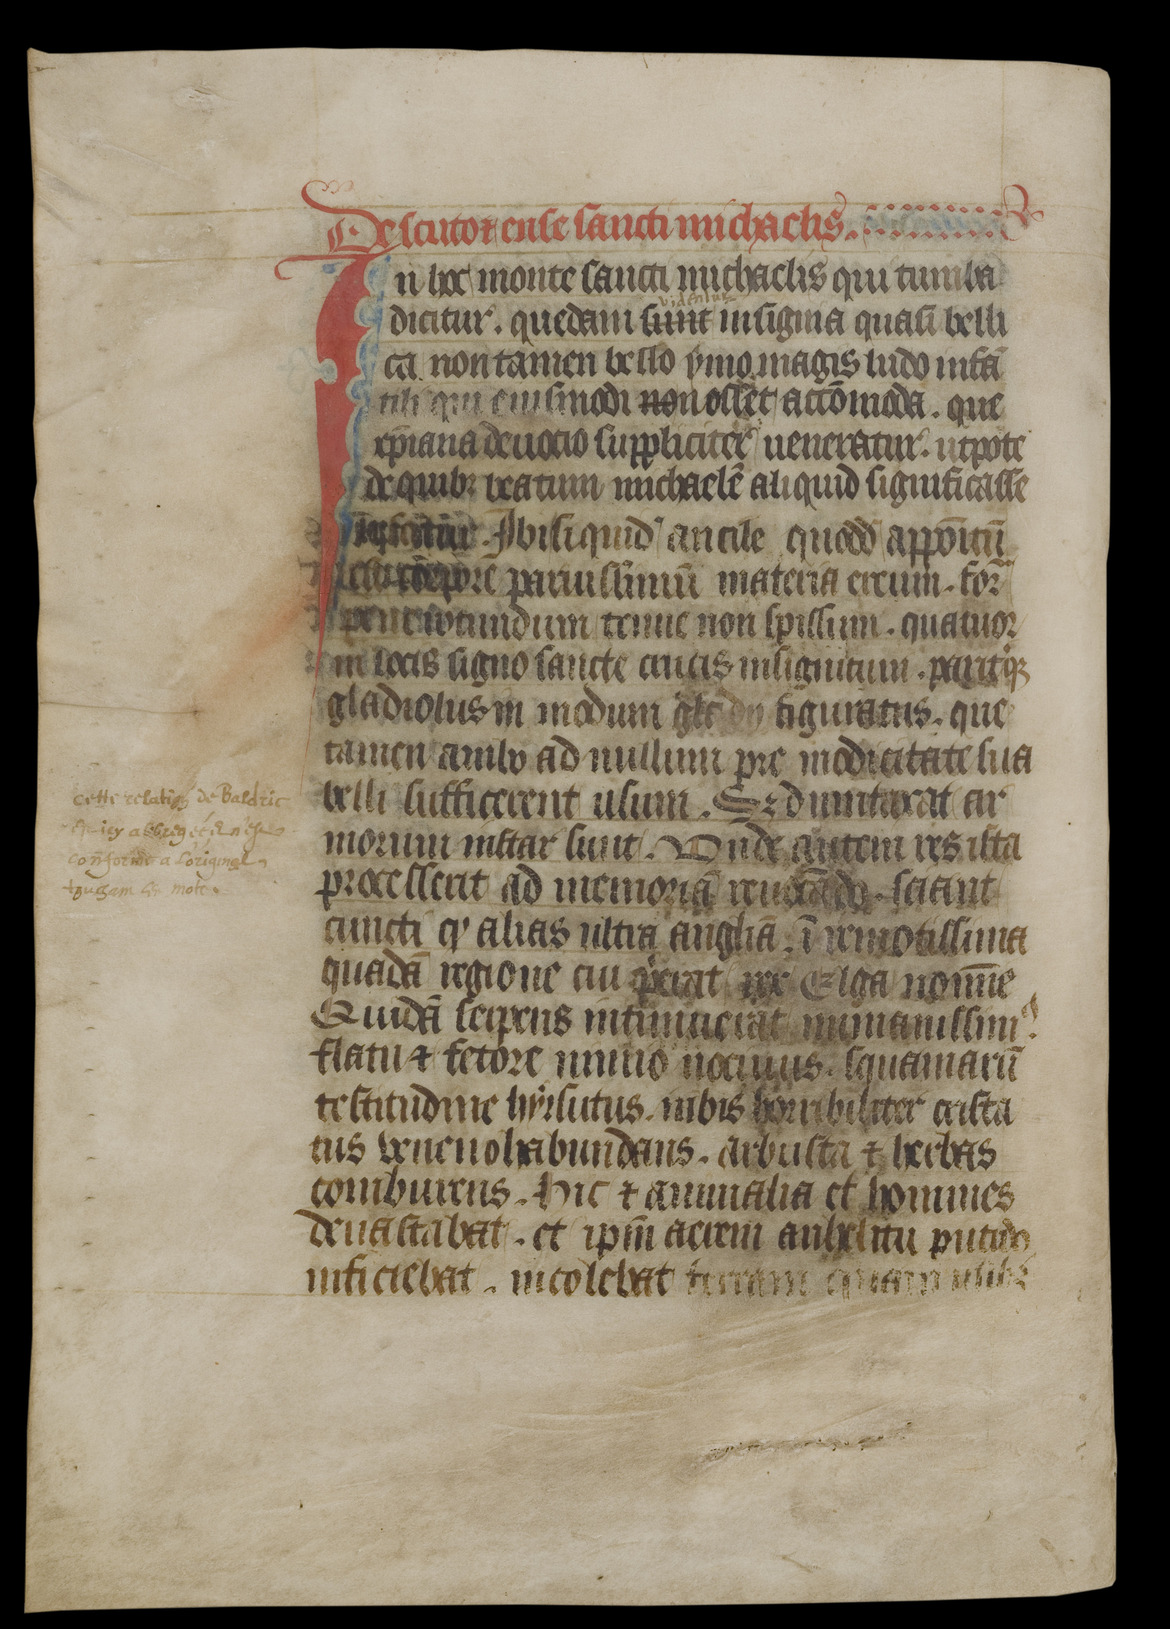 De scuto et ense sancti michaelis.
In hoc monte sancti michaelis qui tumba
dicitur. quedam sunt insignia quasi belli
videntur
ca non tamen bello ymo magis ludo infā
tili qui eiusmodi non esset accōmoda. que
xp̄iana deuocio suppliciter ueneratur. utpote
de quibꝫ beatum michaelē aliquid significasse
Ibi siquidē ancile quoddā appōitū
paruissimū materia ereum. for
pene rotundum tenue non spissum. quatuor
in locis signo sancte crucis insignitum. paritqꝫ
gladiolus in modum figuratus. que
tamen ambo ad nullum pre modicitate sua
belli sufficerent usum. Sꝫ dumtaxat ar
morum instar sunt. Unde autem res ista
processerit ad memoriā sciant
cuncti qꝫ alias ultra angliā. ī remotissima
quadā regione cui p̄erat rex Elga nomīe
Quidā serpens intumuerat inmanissimꝰ
flatu ⁊ fetore nimio nociuus. squamarū
testitudine hyrsutus. iubis horribiliter crista
tus ueneno habundans. arbusta ⁊ herbas
comburens. Hic ⁊ animalia et homines
deuastabat. et ip̄m aerem anhelitu putido
inficiebat. incolebat terram quam
cette relation de Baldric
icy abbregée & n'est
conforme a l'original